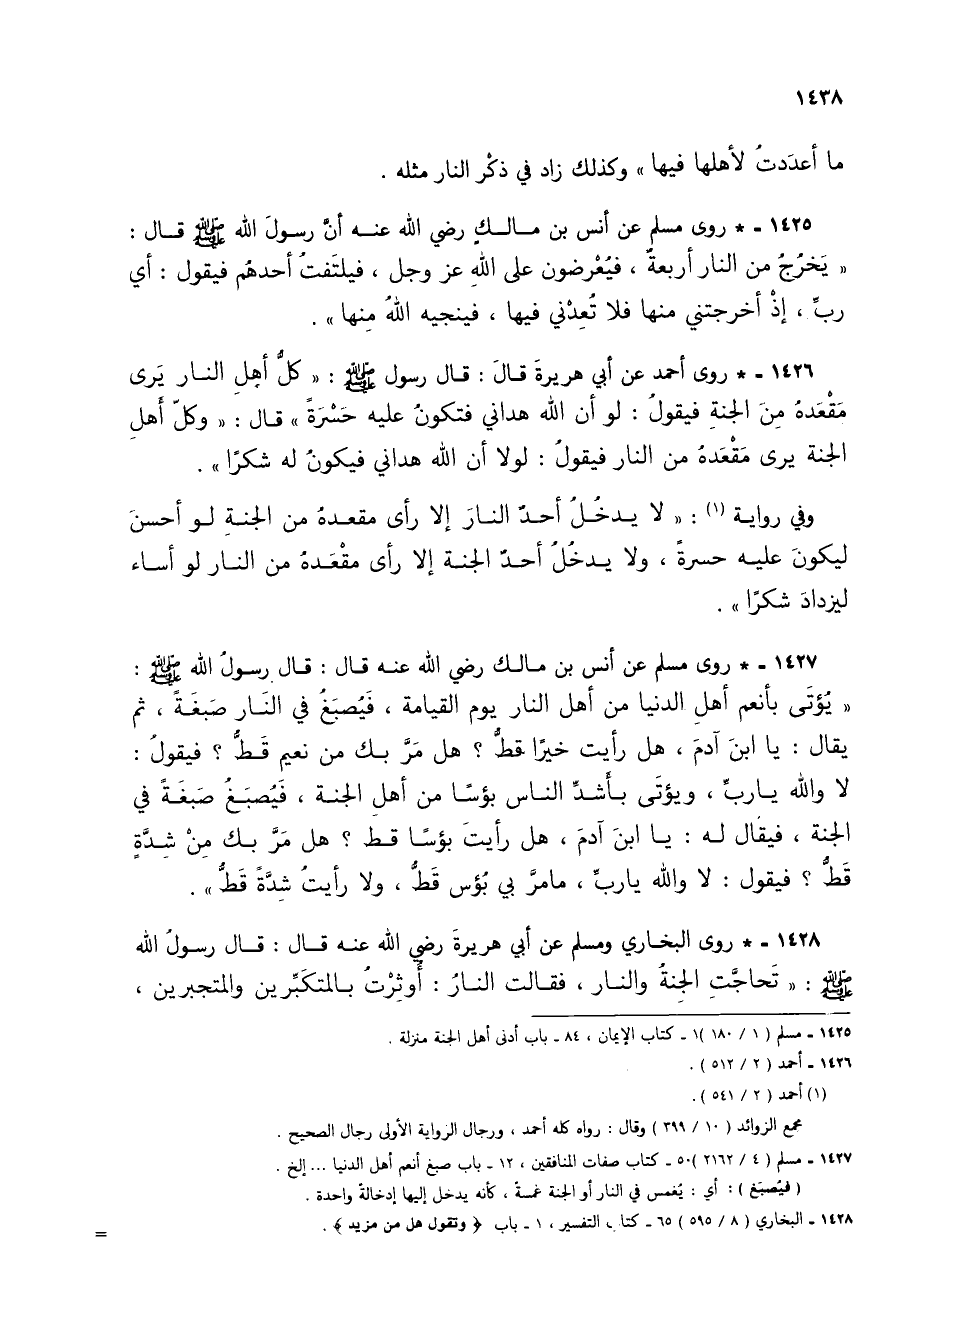 ١٤٣٨
ما أعدَدتُ لأهلها فيها » وكذلك زاد في ذكْر النار مثله .
١٤٢٥ - * روى مسلم عن أنس بن مـالـكٍ رضي الله عنـه أنَّ رسولَ الله ﷺ قـال :
« يَخرُجُ من النار أربعةٌ ، فيُعْرضون على اللهِ عز وجل ، فيلتَفتُ أحدهُم فيقول : أي
ربِّ ، إذْ أخرجتني منها فلا تُعِدْني فيها ، فينجيه اللهُ مِنها » .
١٤٢٦ - * روى أحمد عن أبي هريرةَ قالَ : قال رسول ﷺ : « كلُّ أهلِ النـار يَرى
مَقْعَدهُ مِنَ الجنةِ فيقولُ : لو أن الله هداني فتكونُ عليه حَسْرَةً » قـال : « وكلّ أهلِ
الجنة يرى مَقْعَدهُ من النار فيقولُ : لولا أن الله هداني فيكونُ له شكرًا » .
وفي رواية (١) : « لا يـدخُـلُ أحـدٌ النـارَ إلا رأى مقعـدهُ من الجنـةِ لـو أحسنَ
ليكونَ عليـه حسرةً ، ولا يـدخُلُ أحـدٌ الجنـة إلا رأى مقْعَـدهُ من النـار لو أساء
ليزدادَ شكرًا » .
١٤٢٧ - * روى مسلم عن أنس بن مـالـك رضي الله عنـه قال : قال رسولُ الله ﷺ :
« يُؤتَى بأنعم أهلِ الدنيا من أهل النار يوم القيامة ، فَيُصبَغُ في النَار صَبغَةً ، ثم
يقال : يا ابنَ آدمَ ، هل رأيت خيرًا قطُّ ؟ هل مَرَّ بـك من نعيم قَـطُّ ؟ فيقولُ :
لا والله يـاربِّ ، ويؤتَى بـأشـدِّ النـاس بؤسًا من أهلِ الجنـة ، فَيُصبَـغُ صَبغَـةً في
الجنة ، فيقال لـه : يـا ابن آدمَ ، هل رأيتَ بؤسًا قـط ؟ هل مَرَّ بـك مِنْ شِدَّةٍ
قَطُّ ؟ فيقول : لا والله ياربِّ ، مامرَّ بي بُؤس قَطُّ ، ولا رأيتُ شدَّةً قَطُّ » .
١٤٢٨ - * روى البخـاري ومسلم عن أبي هريرةَ رضي الله عنـه قـال : قـال رسولُ الله
ﷺ : « تَحاجَّتِ الجنةُ والنـار ، فقـالت النـارُ : أُوثِرْتُ بـالمتكبِّرين والمتجبرين ،
١٤٢٥ - مسلم ( ١ / ١٨٠ )١ - كتاب الإيمان ، ٨٤ - باب أدنى أهل الجنة منزلة .
١٤٢٦ - أحمد ( ٢ / ٥١٢ ) .
(١) أحمد ( ٢ / ٥٤١ ) .
مجمع الزوائد ( ١٠ / ٣٩٩ ) وقال : رواه كله أحمد ، ورجال الرواية الأولى رجال الصحيح .
١٤٢٧ - مسلم ( ٤ / ٢١٦٢ )٥٠ - كتاب صفات المنافقين ، ١٢ - باب صبغ أنعم أهل الدنيا ... إلخ .
( فيُصبَغ ) : أي : يُغمس في النار أو الجنة غمسةً ، كأنه يدخل إليها إدخالةً واحدة .
١٤٢٨ - البخاري ( ٨ / ٥٩٥ ) ٦٥ - كتاب التفسير ، ١ - باب ﴿ وتقول هل من مزيد ﴾ .
=